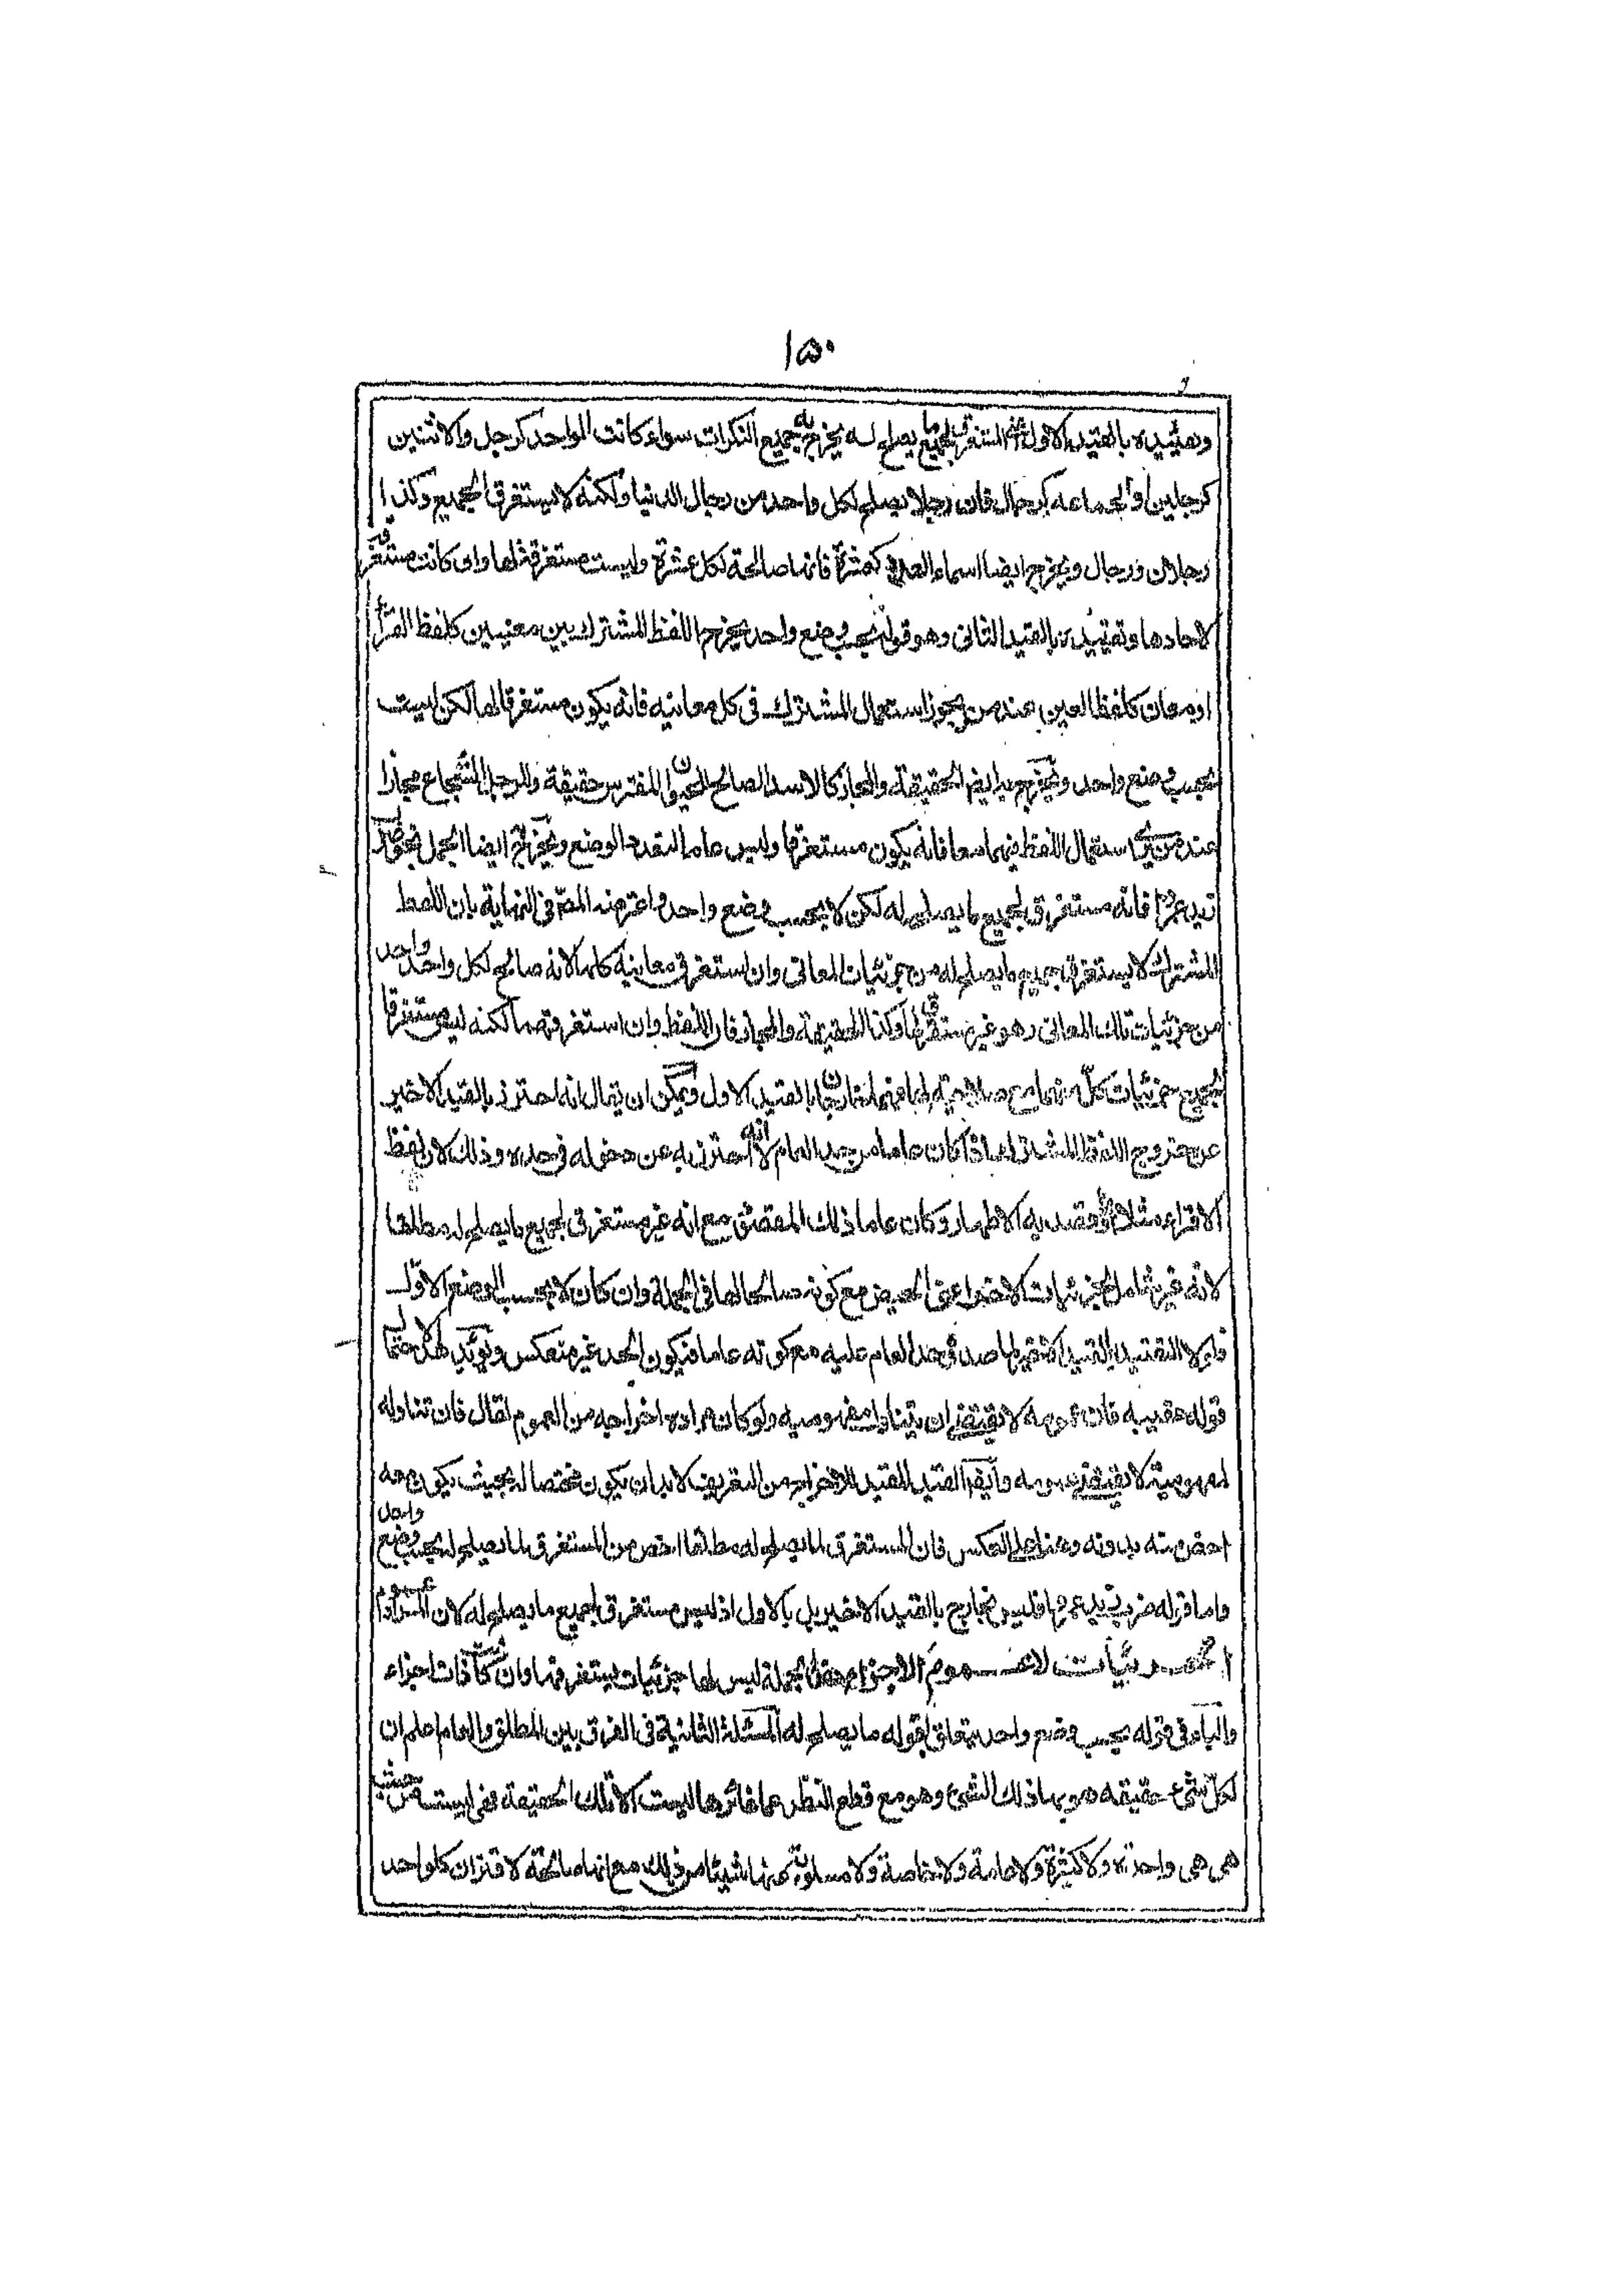 ١٥٠
وتقييده بالقيد الاول المستغرق لجميع ما يصلح له يخرج به جميع النكرات سواء كانت لواحد كرجل والاثنين
كرجلين او لجماعة كرجال فان رجلا يصلح لكل واحد من رجال الدنيا ولكنه لا يستغرق الجميع وكذا
رجلان ورجال ويخرج ايضا اسماء العدد كعشرة فانها صالحة لكل عشرة وليست مستغرقة لها وان كانت مستغرقة
لاحادها وتقييده بالقيد الثانى وهو قوله بحسب وضع واحد يخرج اللفظ المشترك بين معنيين كلفظ القرأ
او معان كلفظ العين عند من يجوز استعمال المشترك فى كل معانيه فانه يكون مستغرقا لها لكن ليست
بحسب وضع واحد ويخرج به ايضا الحقيقة والمجاز كالاسد الصالح للحيوان المفترس حقيقة والرجل الشجاع مجازا
عند من استعمال اللفظ فيهما معا فانه يكون مستغرقا وليس عاما لتعدد الوضع ويخرج ايضا الجمل نحو ضرب
زيد عمرا فانه مستغرق لجميع ما يصلح له لكن لا بحسب وضع واحد واعترضه المص فى النهاية بان اللفظ
المشترك لا يستغرق جميع ما يصلح له من جزئيات المعانى وان استغرق معانيه كلها لانه صالح لكل واحد واحد
من جزئيات تلك المعانى وهو غير مستغرق لها وكذا الحقيقة والمجاز فان اللفظ وان استغرقهما لكنه ليس مستغرقا
لجميع جزئيات كل منهما مع صلاحيته لها فهما خارجان بالقيد الاول ويمكن ان يقال انه احترز بالقيد الاخير
عن خروج اللفظ المشترك اذا كان عاما من حد العام لا انه احترز به عن دخوله فى حده وذلك لان لفظ
الاقراء مثلا لو قصد به الاطهار وكان عاما ذلك المقتضى مع انه غير مستغرق لجميع ما يصلح له مطلقا
لانه غير شامل لجزئيات الاخر اعنى الحيض مع كونه صالحا لها فى الجملة وان كان لا بحسب الوضع الاول
فلولا التقييد بالقيد الاخير لما صدق حد العام عليه مع كونه عاما فيكون الحد غير منعكس ويؤيد هذا الاحتمال
قوله عقيبه فان عمومه لا يقتضى ان يتناول مفهوميه ولو كان مراده اخراجه من العموم لقال فان تناوله
لمفهوميه لا يقتضى عمومه وايضا القيد المقيد للاخراج من التعريف لا بد ان يكون مختصا له بحيث يكون معه
اخص منه بدونه وهنا على العكس فان المستغرق لما يصلح له مطلقا اخص من المستغرق لما يصلح له بحسب وضع واحد
واما قوله ضرب زيد عمرا فليس بخارج بالقيد الاخير بل بالاول اذ ليس مستغرق لجميع ما يصلح له لان
الجزئيات لا عموم الاجزاء الجملة ليس لها جزئيات يستغرقها وان كانت ذات اجزاء
والباء فى قوله بحسب وضع واحد يتعلق بقوله ما يصلح له المسئلة الثانية فى الفرق بين المطلق والعام اعلم ان
لكل شئ حقيقة هو بها ذلك الشئ وهو مع قطع النظر عما غائرها ليست الا تلك الحقيقة فهى ليست من حيث
هى هى واحدة ولا كثيرة ولا عامة ولا خاصة ولا مسلوبة عنها شيئا من ذلك مع انها صالحة لاقتران كل واحد